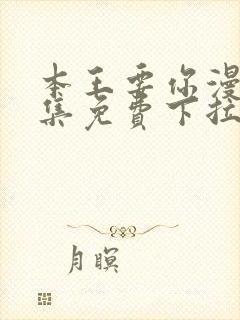 本王要你漫
集免費下拉
月暝